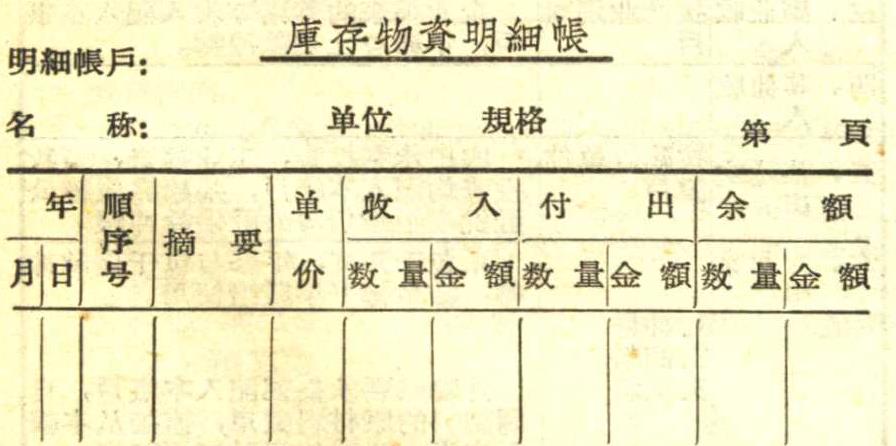 庫存物資明細帳
明細帳戶:
名 称: 单位 規格 第 頁
年 順序号 摘要 单价 收入 付出 余額
月 日 数量 金額 数量 金額 数量 金額